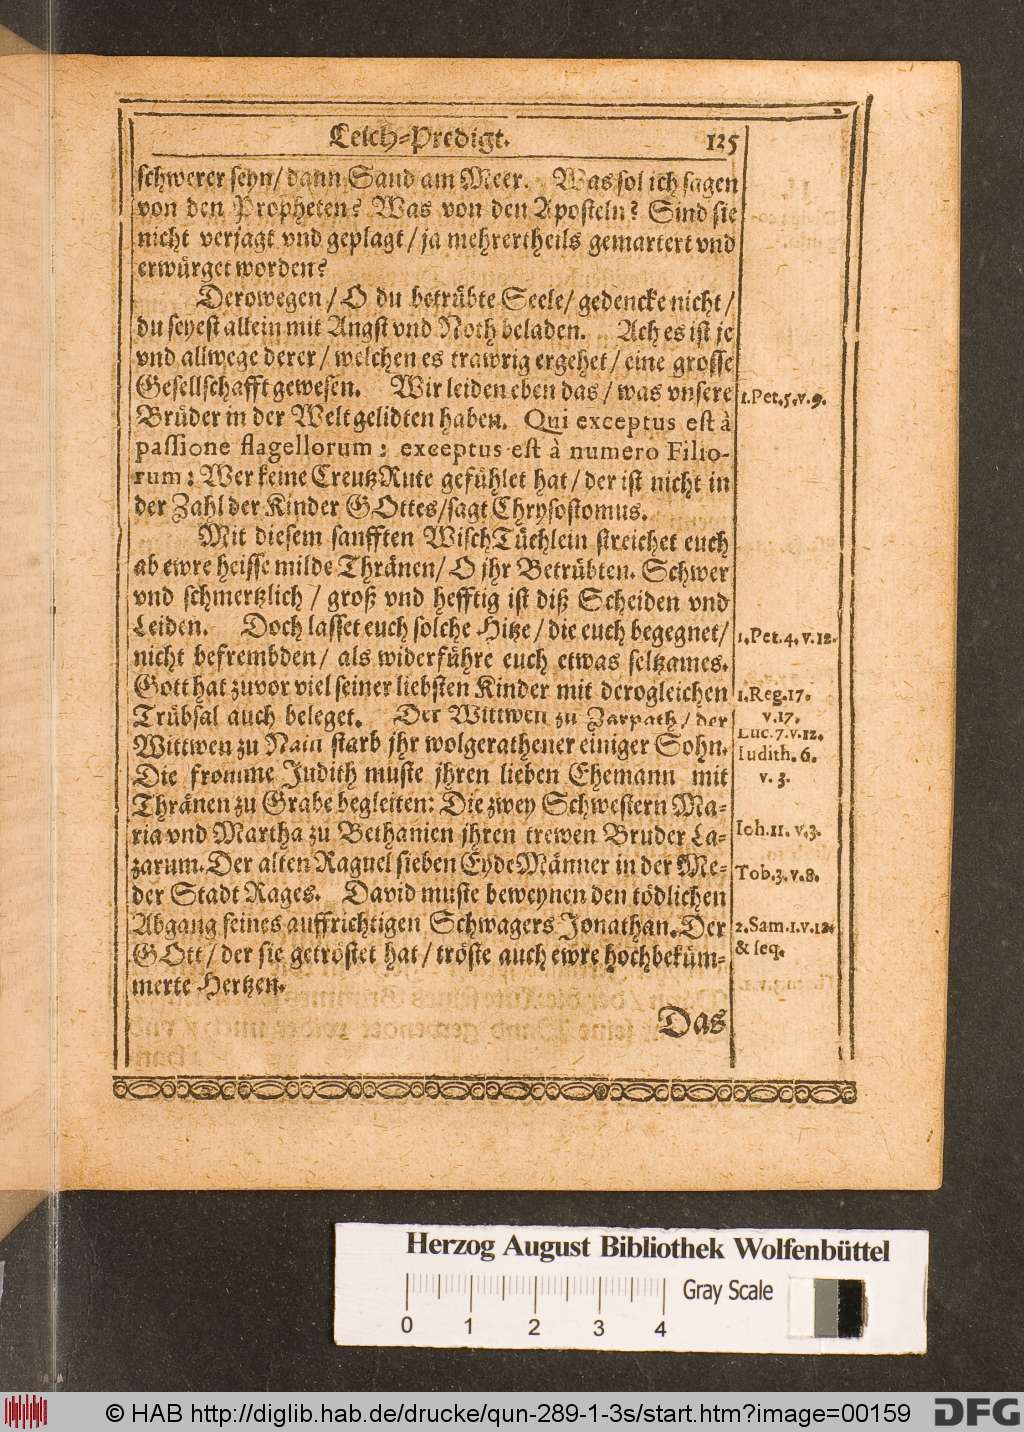 Leich-Predigt. 125
schwerer seyn/ dann Sand am Meer. Was sol ich sagen
von den Propheten? Was von den Aposteln? Sind sie
nicht verjagt vnd geplagt/ ja mehrertheils gemartert vnd
erwürget worden?
Derowegen/ O du betrübte Seele/ gedencke nicht/
du seyest allein mit Angst vnd Noth beladen. Ach es ist je
vnd allwege derer/ welchen es trawrig ergehet/ eine grosse
Gesellschafft gewesen. Wir leiden eben das/ was vnsere
1. Pet. 5. v. 9.
Brüder in der Welt gelidten haben. Qui exceptus est à
passione flagellorum: exceptus est à numero Filio-
rum: Wer keine CreutzRute gefühlet hat/ der ist nicht in
der Zahl der Kinder GOttes/ sagt Chrysostomus.
Mit diesem sanfften WischTüchlein streichet euch
ab ewre heisse milde Thränen/ O jhr Betrübten. Schwer
vnd schmertzlich/ groß vnd hefftig ist diß Scheiden vnd
Leiden. Doch lasset euch solche Hitze/ die euch begegnet/
1. Pet. 4. v. 12.
nicht befrembden/ als widerführe euch etwas seltzames.
Gott hat zuvor viel seiner liebsten Kinder mit derogleichen
1. Reg. 17.
Trübsal auch beleget. Der Wittwen zu Zarpath/ der
v. 17.
Wittwen zu Nain starb jhr wolgerathener einiger Sohn.
Luc. 7. v. 12.
Iudith. 6.
Die fromme Judith muste jhren lieben Ehemann mit
v. 3.
Thränen zu Grabe begleiten: Die zwey Schwestern Ma-
ria vnd Martha zu Bethanien jhren trewen Bruder La-
Ioh. 11. v. 3.
zarum. Der alten Raguel sieben EydeMänner in der Me-
Tob. 3. v. 8.
der Stadt Rages. David muste beweynen den tödlichen
Abgang seines auffrichtigen Schwagers Jonathan. Der
2. Sam. 1. v. 12.
GOtt/ der sie getröstet hat/ tröste auch ewre hochbeküm-
& seq.
merte Hertzen.
Das
Herzog August Bibliothek Wolfenbüttel
Gray Scale
0 1 2 3 4
© HAB http://diglib.hab.de/drucke/qun-289-1-3s/start.htm?image=00159
DFG